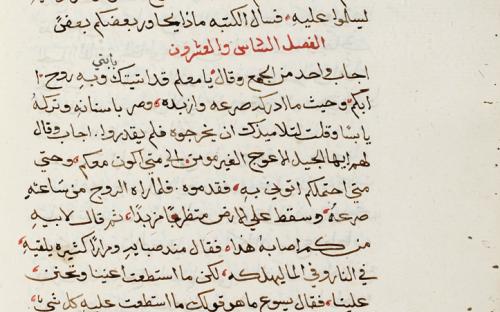 ليسلموا عليه، فسأل الكتبه ماذا يحاور بعضكم بعض
الفصل السادس والعشرون
اجاب واحد من الجمع وقال يا معلم قد اتيتك بابني وبه روح
ابكم وحيث ما ادركه صرعه وازبده، وصر باسنانه وتركه
يابسا وقلت لتلاميذك ان يخرجوه فلم يقدروا. اجاب وقال
لهم ايها الجيل الاعوج الغير مومن الى متي اكون معكم، وحتي
متي احتملكم اتوني به، فقدموه. فلما راه الروح من ساعته
صرعه، وسقط علي الارض مزبدا، ثم قال لابيه
من كم اصابه هذا، فقال منذ صبايه، ومرارا كثيره يلقيه
في النار وفي الما ليهلكه، لكن ما استطعت اعنا وتحنن
علينا، فقال يسوع ما هو قولك ما استطعت عليه كل شي